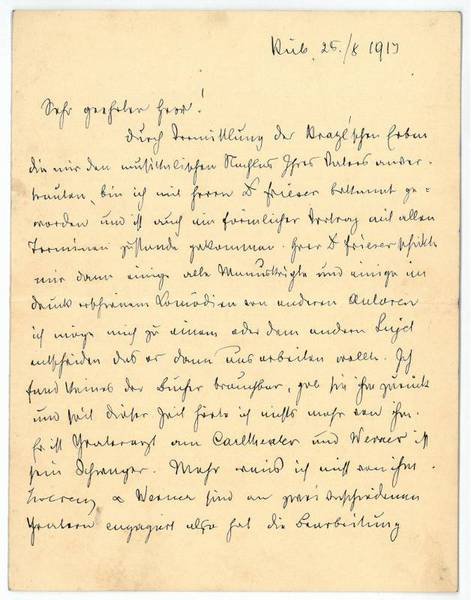 25./8 1917
Sehr geehrter Herr!
Durch Vermittlung der Krazl'schen Erben
die mir den musikalischen Nachlas Ihres Vaters anver-
trauten, bin ich mit Herrn D Frieser bekannt ge-
worden und ist auch ein förmlicher Vertrag mit allen
Terminen zustande gekommen. Herr D Frieser schickte
mir dann einige alte Manuskripte und einige im
druck erschienene Komödien von anderen Autoren
ich möge mich zu einem oder dem andern Sujet
entscheiden das er dann ausarbeiten wollte. Ich
fand keines der Bücher brauchbar, gab sie ihm zurück
und seit dieser Zeit hörte ich nichts mehr von ihm.
Er ist Theaterarzt am Carltheater und Werner ist
sein Schwager. Mehr weis ich nicht von ihm.
& Werner sind an zwei verschiedenen
Theatern engagiert also hat die Bearbeitung